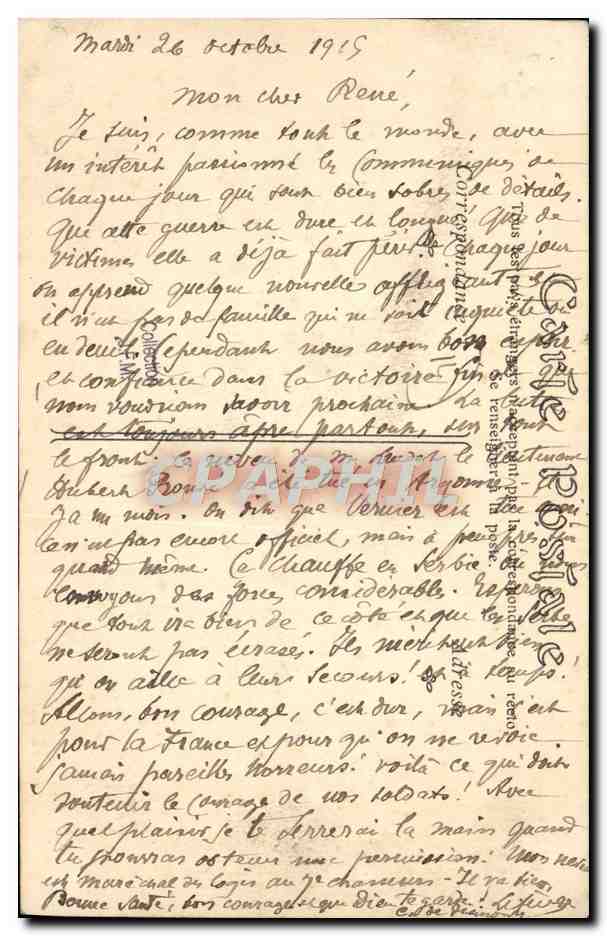 Mardi 26 octobre 1915
Mon cher René,
Je suis, comme tout le monde, avec
un intérêt passionné les Communiqués de
chaque jour qui sont bien sobres de détails.
Que cette guerre est dure et longue, que de
victimes elle a déjà fait périr. Chaque jour
on apprend quelque nouvelle affligeante et
il n'est pas de famille qui ne soit inquiète ou
en deuil. Cependant nous avons bon espoir
et confiance dans la victoire finale que
nous voudrions savoir prochaine. La lutte
est toujours âpre partout, sur tout
le front. Le neveu de le lieutenant
Hubert a été tué en Argonne
y a un mois. On dit que est
Ce n'est pas encore officiel, mais à peu près sûr
quand même. Ça chauffe en Serbie où nous
envoyons des forces considérables. Espérons
que tout ira bien de ce côté et que les Serbes
ne seront pas écrasés. Ils méritent bien
qu'on aille à leurs secours! temps!
Allons, bon courage, c'est dur, mais c'est
pour la France et pour qu'on ne revoie
jamais pareilles horreurs! voilà ce qui doit
soutenir le courage de nos soldats! Avec
quel plaisir je te serrerai la main quand
tu pourras obtenir une permission! Mon neveu
est maréchal des logis au 7e chasseurs - Il va bien.
Bonne santé, bon courage et que Dieu te garde.
Carte postale
Tous les pays étrangers n'acceptent pas la correspondance au recto
Se renseigner à la poste.
Correspondance
Adresse
Collection
CPAPHIL